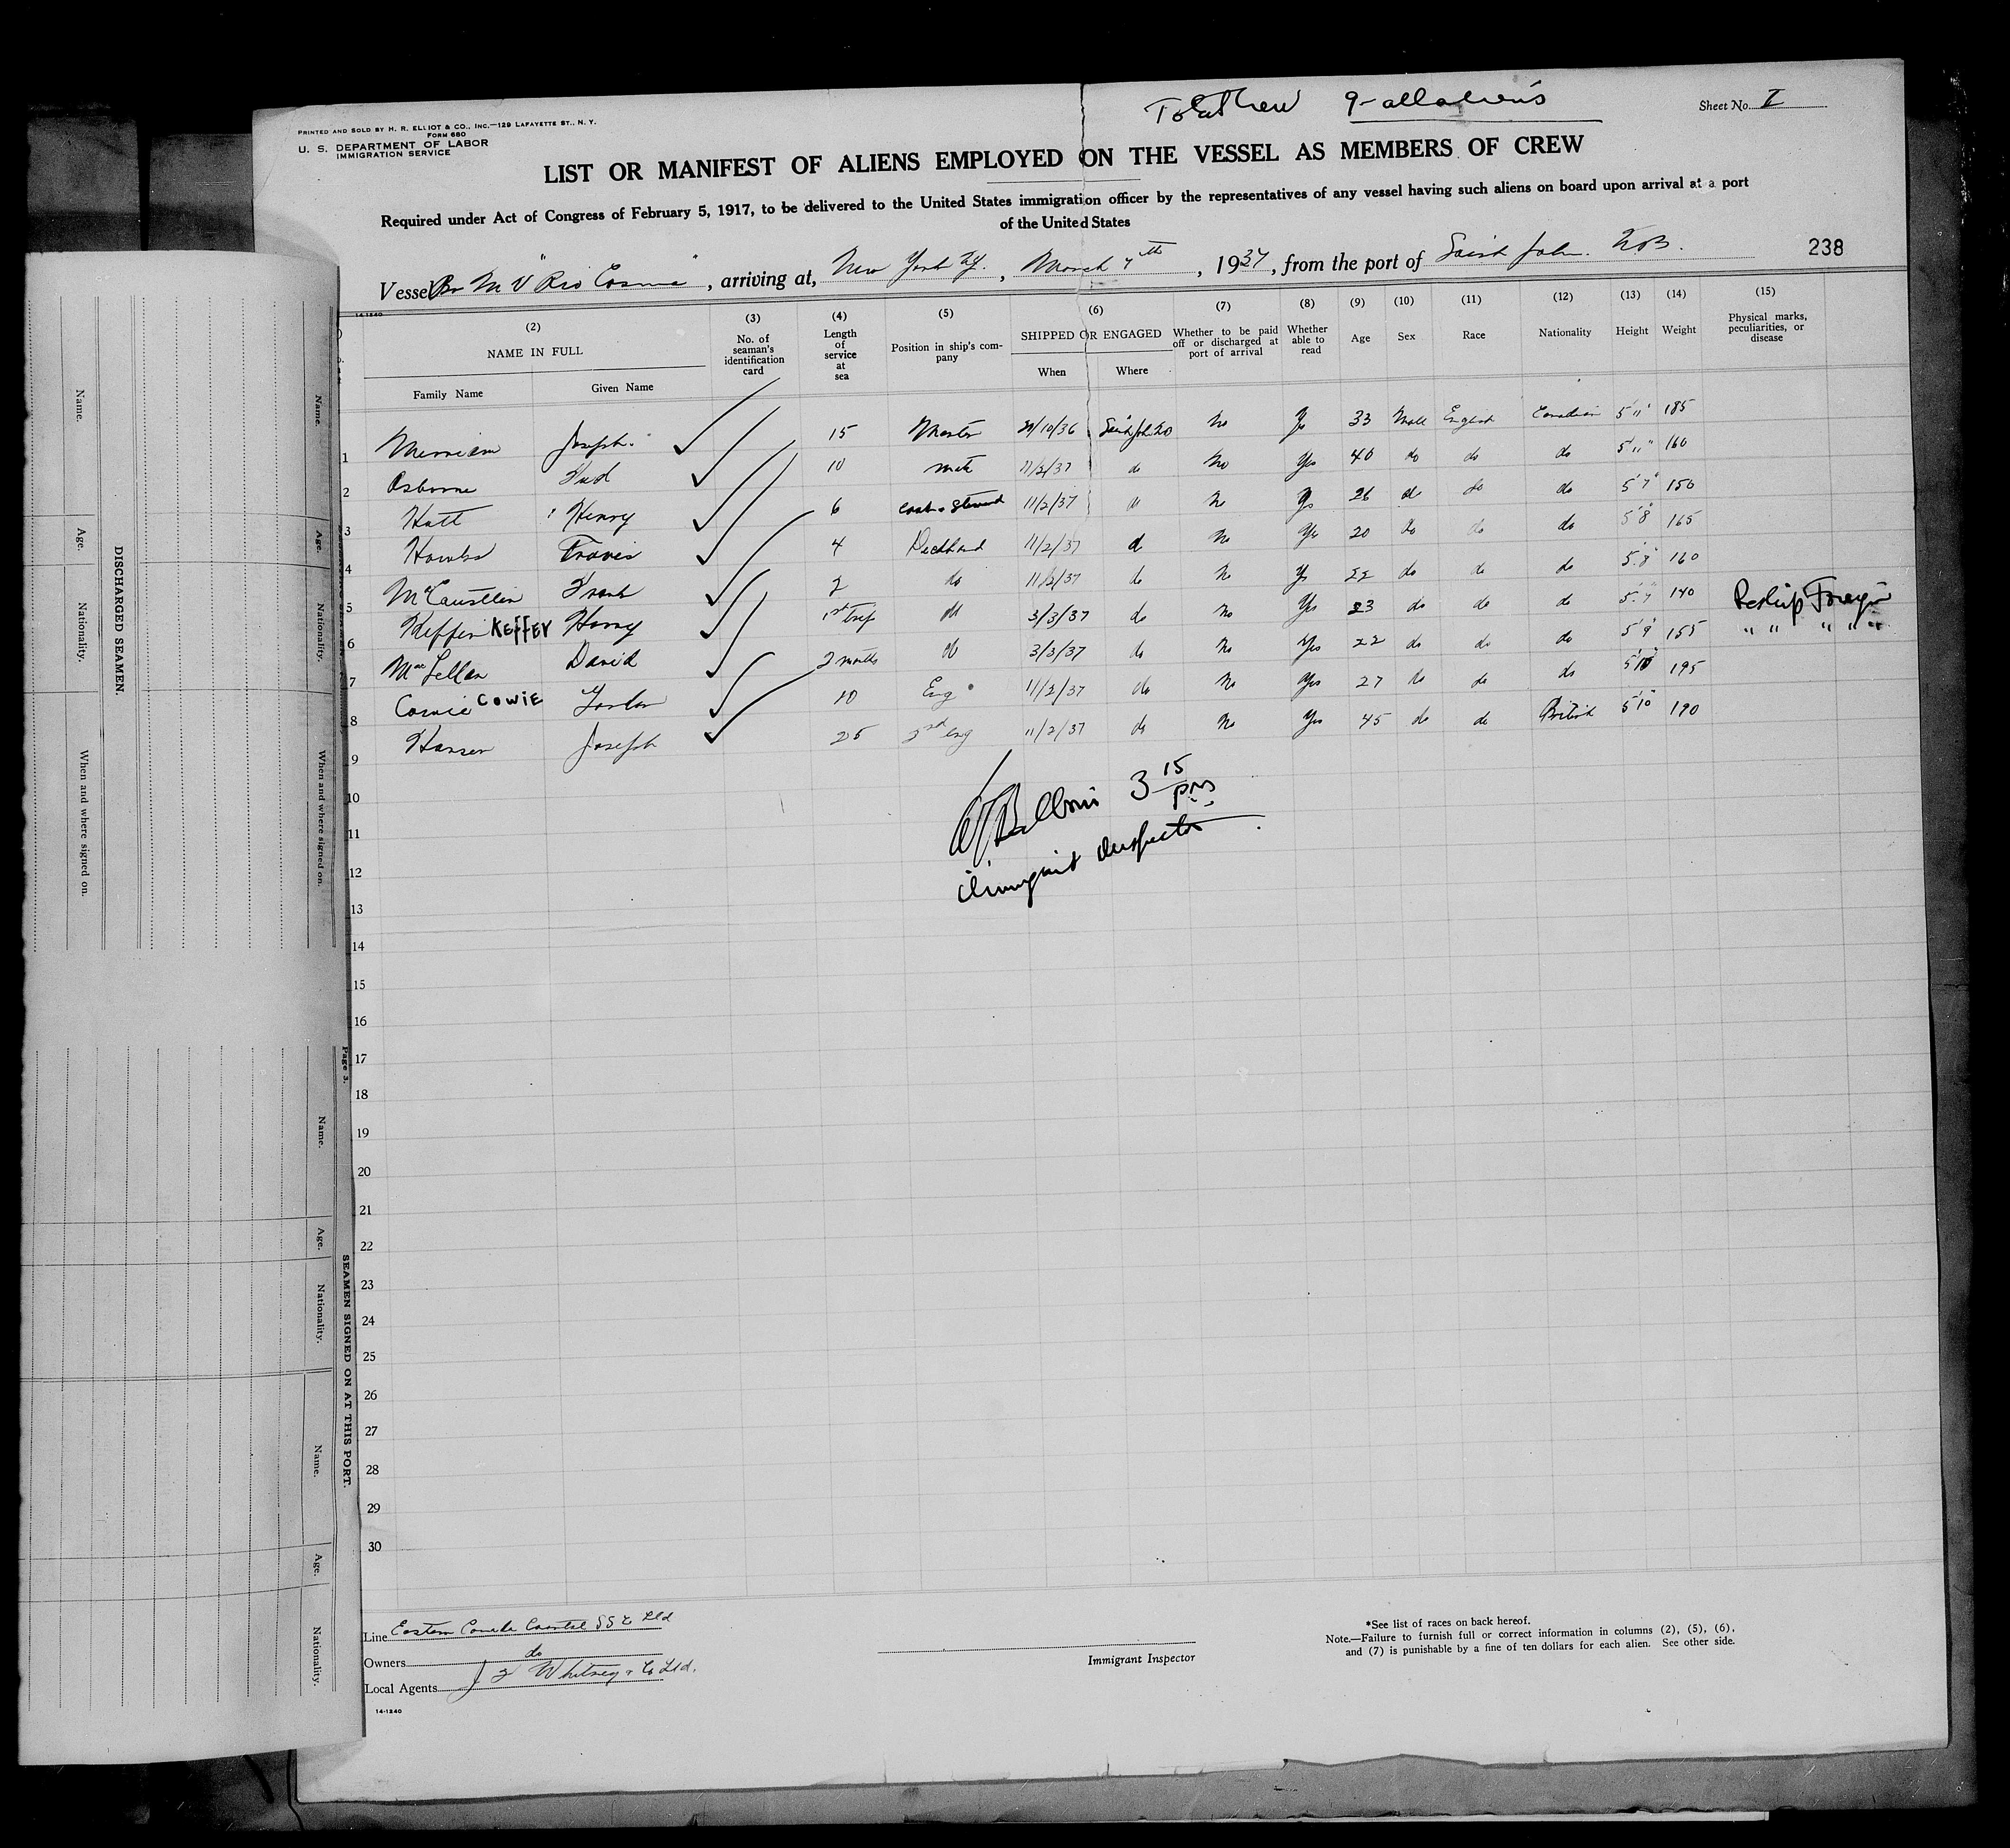 Total Crew 9 - all aliens
Sheet No. I
PRINTED AND SOLD BY H. R. ELLIOT & CO., INC.—129 LAFAYETTE ST., N. Y.
FORM 680
U. S. DEPARTMENT OF LABOR
IMMIGRATION SERVICE
LIST OR MANIFEST OF ALIENS EMPLOYED ON THE VESSEL AS MEMBERS OF CREW
Required under Act of Congress of February 5, 1917, to be delivered to the United States immigration officer by the representatives of any vessel having such aliens on board upon arrival at a port
of the United States
Vessel Br M V "Rio Casma", arriving at, New York NY., March 7th, 1937, from the port of Saint John N.B. 238
14-1240
(2) NAME IN FULL
Family Name Given Name
(3) No. of seaman's identification card
(4) Length of service at sea
(5) Position in ship's company
(6) SHIPPED OR ENGAGED
When Where
(7) Whether to be paid off or discharged at port of arrival
(8) Whether able to read
(9) Age
(10) Sex
(11) Race
(12) Nationality
(13) Height
(14) Weight
(15) Physical marks, peculiarities, or disease
1 Merriam Joseph 15 Master /10/36 Saint John NB No Yes 33 Male English Canadian 5'11" 185
2 Osborne 10 Mate 11/2/37 do No Yes 40 do do do 5'11" 160
3 Hatt Henry 6 cook & steward 11/2/37 do No Yes 26 do do do 5'7" 150
4 Travis 4 Deckhand 11/2/37 do No Yes 20 do do do 5'8" 165
5 McCaustlin Frank 2 do 11/2/37 do No Yes 22 do do do 5'8" 160
6 KEFFEY Harry 1st trip do 3/3/37 do No Yes 23 do do do 5'7" 140 Reship Foreign
7 MacLellan David 2 months do 3/3/37 do No Yes 22 do do do 5'9" 155 " " " " "
8 Cowie COWIE 10 Eng. 11/2/37 do No Yes 27 do do do 5'10" 195
9 Hansen Joseph 25 2nd eng 11/2/37 do No Yes 45 do do British 5'10" 190
3 15 pm
Immigrant Inspector
10
11
12
13
14
15
16
17
18
19
20
21
22
23
24
25
26
27
28
29
30
Line Eastern Canada Coastal SS Co Ltd
Owners do
Local Agents J F Whitney & Co Ltd.
14-1240
Immigrant Inspector
*See list of races on back hereof.
Note.—Failure to furnish full or correct information in columns (2), (5), (6),
and (7) is punishable by a fine of ten dollars for each alien. See other side.
DISCHARGED SEAMEN.
Name.
Age.
Nationality.
When and where signed on.
Name.
Age.
Nationality.
When and where signed on.
Page 3.
SEAMEN SIGNED ON AT THIS PORT.
Name.
Age.
Nationality.
Name.
Age.
Nationality.